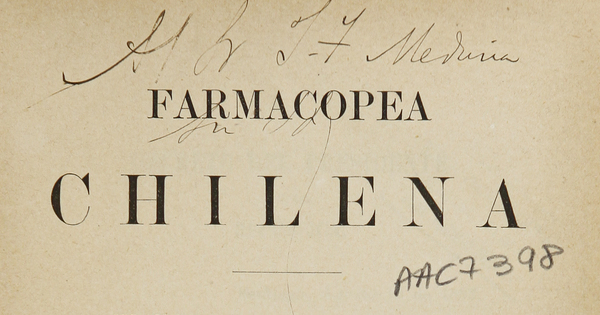 Al Sr J.T. Medina
FARMACOPEA
CHILENA
AAC7398